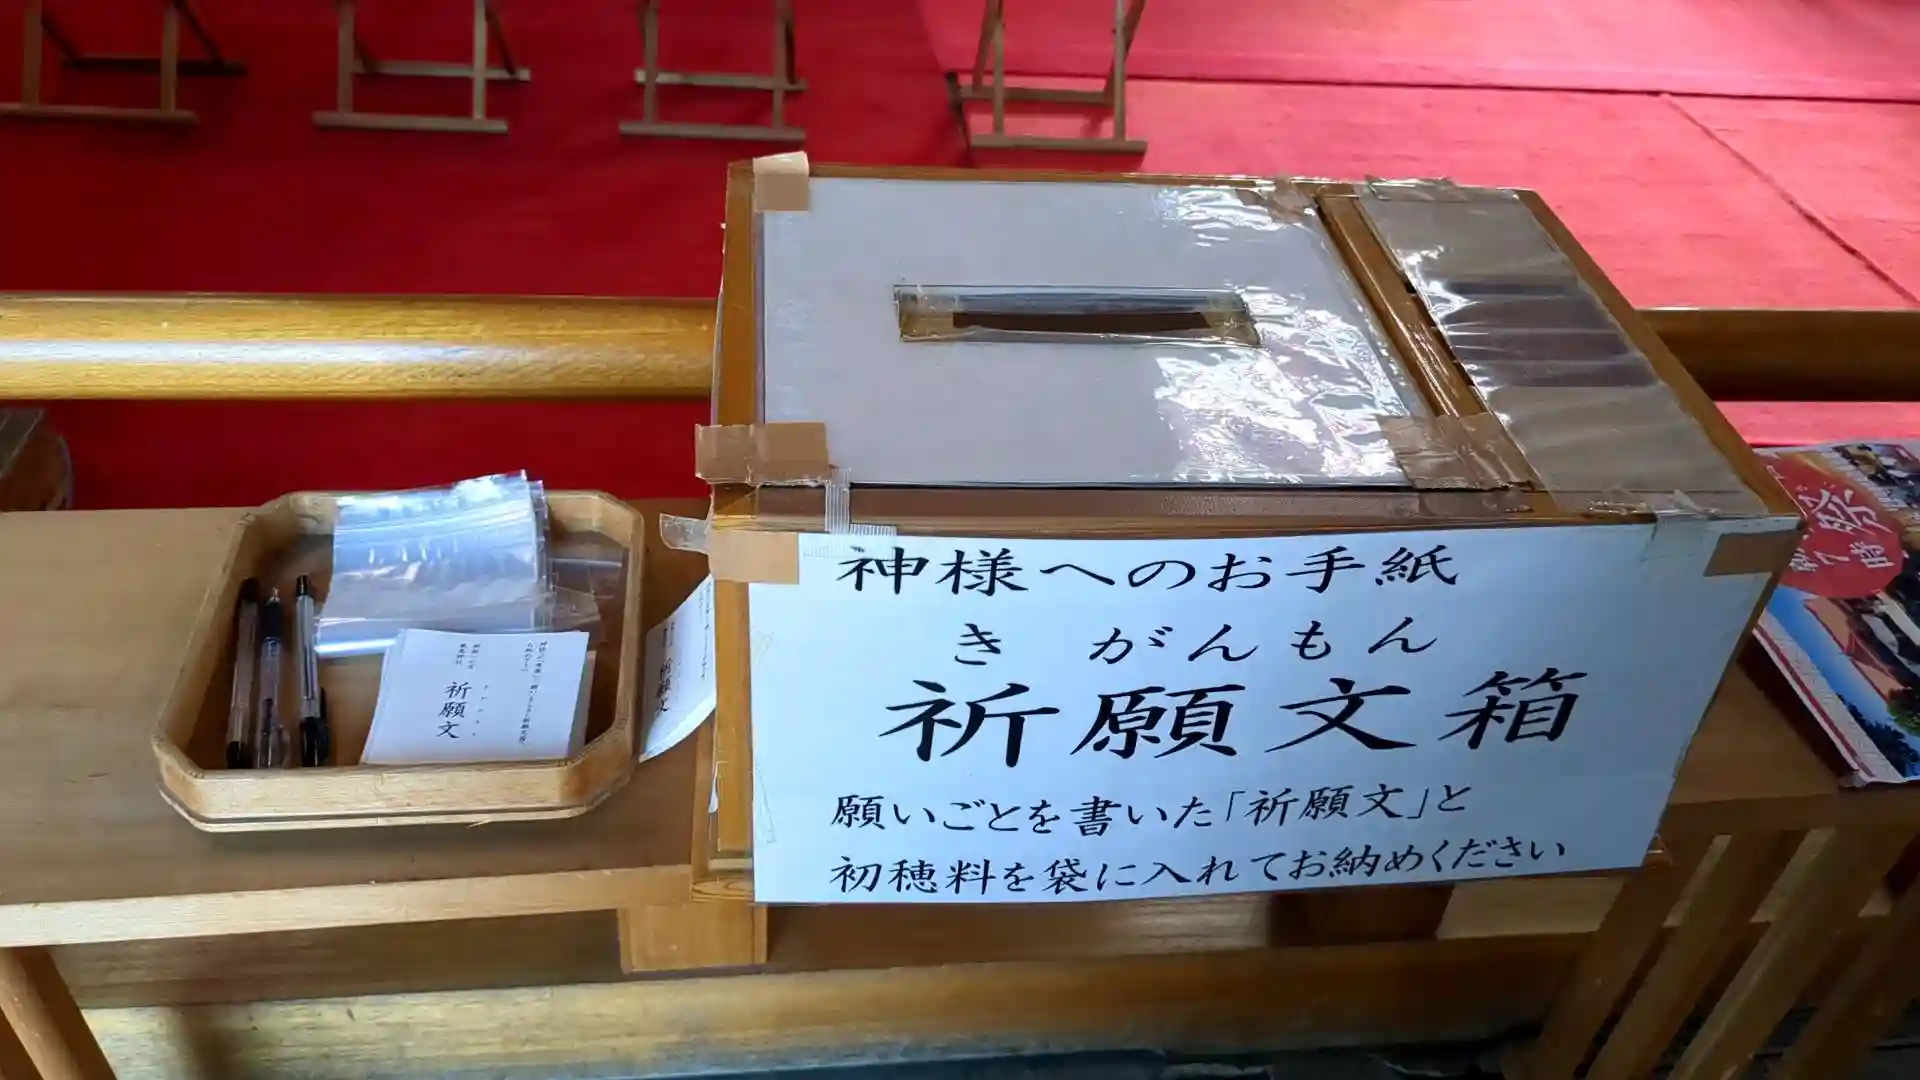 神様へのお手紙
き がんもん
祈願文箱
願いごとを書いた「祈願文」と
初穂料を袋に入れてお納めください
祈願文
祈願文
祭
7時